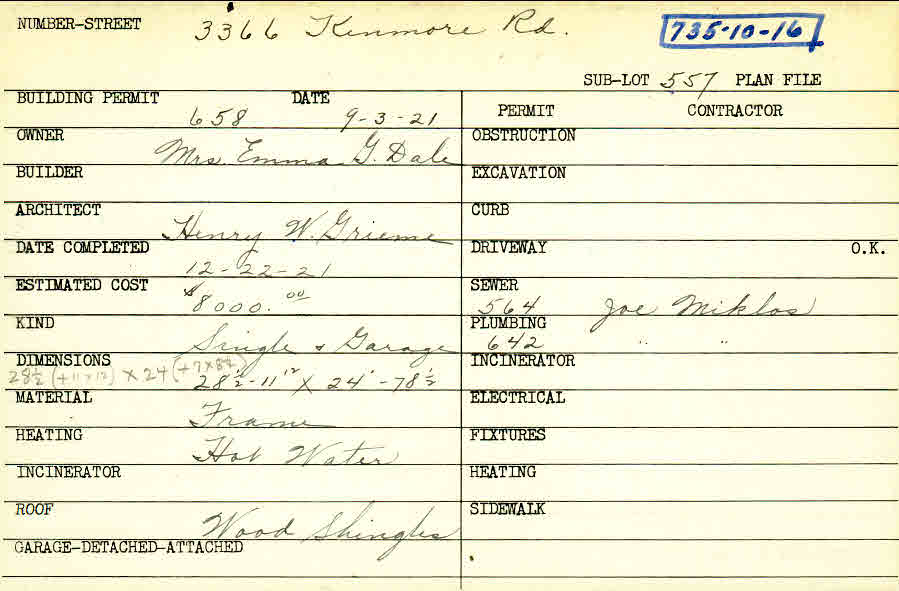 NUMBER-STREET 3366 Kenmore Rd. 735-10-16
SUB-LOT 557 PLAN FILE
BUILDING PERMIT 658 DATE 9-3-21
OWNER Mrs. Emma G. Dale
BUILDER
ARCHITECT Henry W. Grieme
DATE COMPLETED 12-22-21
ESTIMATED COST $8000.00
KIND Single & Garage
DIMENSIONS 28½-11 12 X 24'-78½
28½ (+11x12) x 24 (+7x8½)
MATERIAL Frame
HEATING Hot Water
INCINERATOR
ROOF Wood Shingles
GARAGE-DETACHED-ATTACHED
PERMIT CONTRACTOR
OBSTRUCTION
EXCAVATION
CURB
DRIVEWAY O.K.
SEWER 564 Joe Miklos
PLUMBING 642 " "
INCINERATOR
ELECTRICAL
FIXTURES
HEATING
SIDEWALK